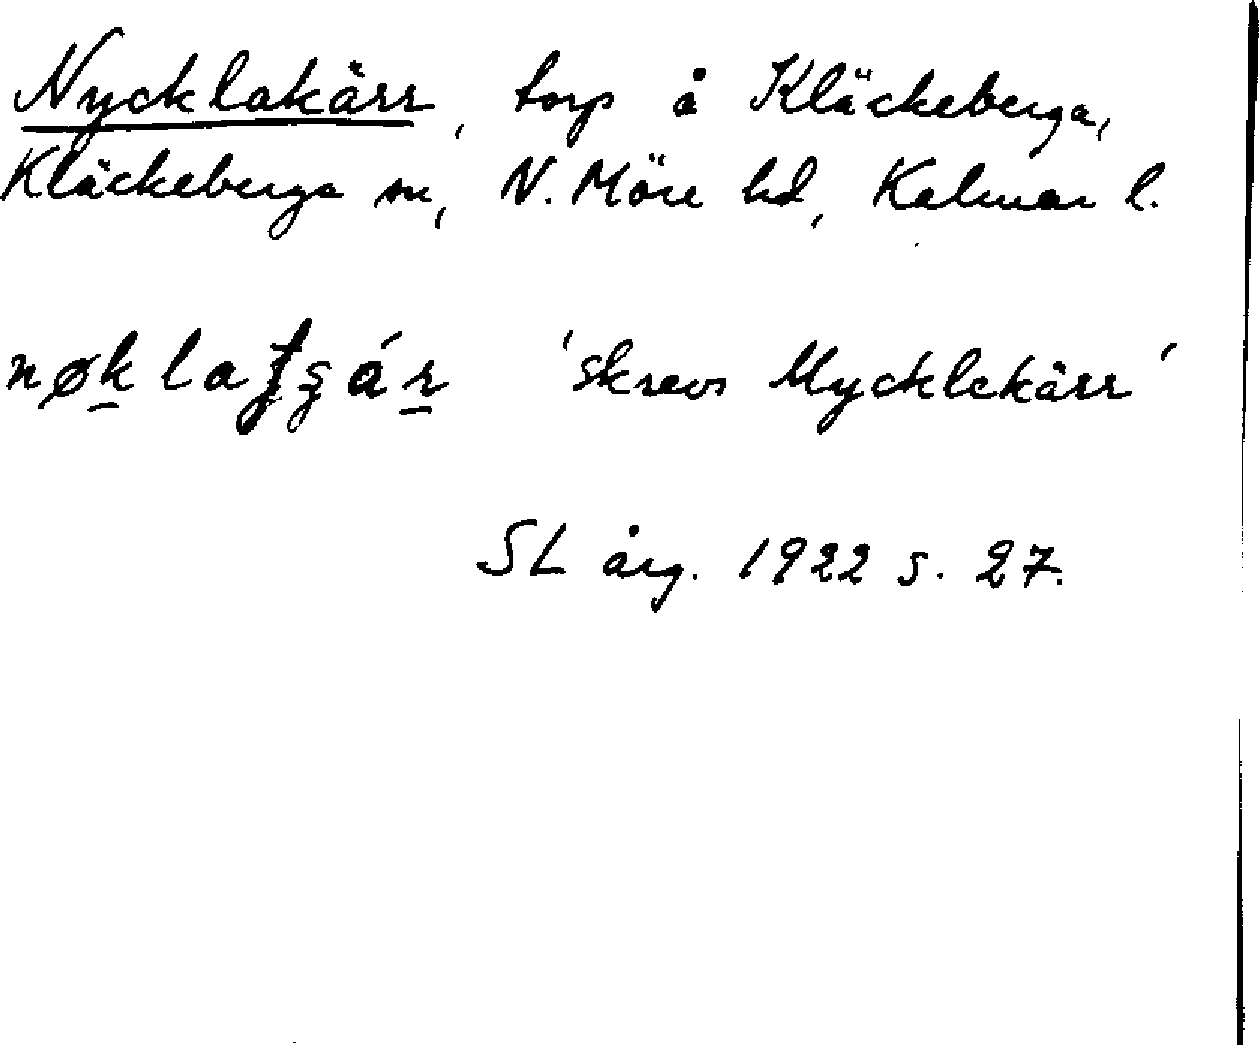 Nycklakärr, torp å Kläckeberga,
Kläckeberga sn, N. Möre hd, Kalmar l.
'skrevs Mycklekärr'
SL årg. 1922 s. 27.